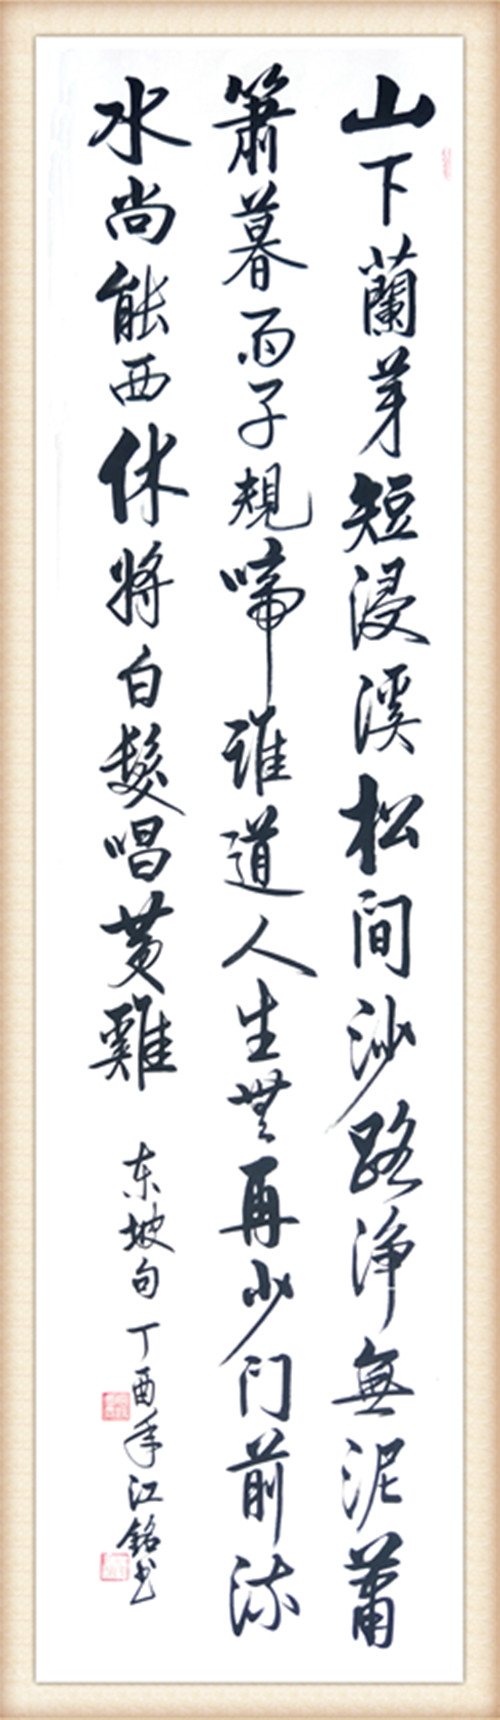 山下蘭芽短浸溪松间沙路淨無泥蕭
簫暮雨子規啼誰道人生無再少门前流
水尚能西休將白髮唱黄雞
东坡句丁酉年江铭书